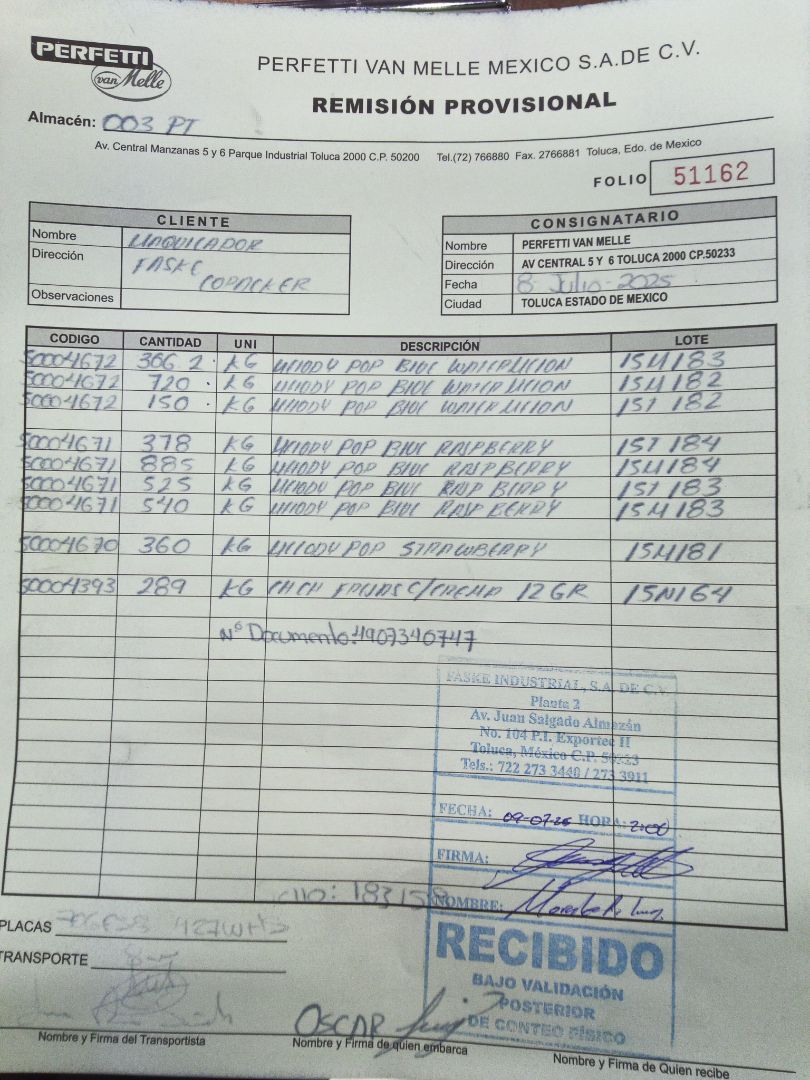 PERFETTI
van Melle
PERFETTI VAN MELLE MEXICO S.A.DE C.V.
REMISIÓN PROVISIONAL
Almacén: 003 PT
Av. Central Manzanas 5 y 6 Parque Industrial Toluca 2000 C.P. 50200 Tel.(72) 766880 Fax. 2766881 Toluca, Edo. de Mexico
FOLIO 51162
CLIENTE
Nombre MAQUILADOR
Dirección FASKE
COPACKER
Observaciones
CONSIGNATARIO
Nombre PERFETTI VAN MELLE
Dirección AV CENTRAL 5 Y 6 TOLUCA 2000 CP.50233
Fecha 8 Julio-2025
Ciudad TOLUCA ESTADO DE MEXICO
CODIGO CANTIDAD UNI DESCRIPCIÓN LOTE
50004672 366 2 KG MELODY POP BLUE WATERMELON 15M183
50004672 720 KG MELODY POP BLUE WATERMELON 15M182
50004672 150 KG MELODY POP BLUE WATERMELON 15T182
50004671 378 KG MELODY POP BLUE RASPBERRY 15T184
50004671 885 KG MELODY POP BLUE RASPBERRY 15M184
50004671 525 KG MELODY POP BLUE RASPBERRY 15T183
50004671 540 KG MELODY POP BLUE RASPBERRY 15M183
50004670 360 KG MELODY POP STRAWBERRY 15M181
50004393 289 KG CH CH C/CREMA 12 GR 15N164
N° Documento: 4907340747
FASKE INDUSTRIAL, S.A. DE C.V.
Planta 2
Av. Juan Salgado Almazán
No. 104 P.I. Exportec II
Toluca, México C.P. 50223
Tels.: 722 273 3440 / 273 3911
FECHA: 09-07-25 HORA: 2:00
FIRMA:
NOMBRE:
RECIBIDO
BAJO VALIDACIÓN
POSTERIOR
DE CONTEO FÍSICO
PLACAS
TRANSPORTE
OSCAR
Nombre y Firma del Transportista
Nombre y Firma de quien embarca
Nombre y Firma de Quien recibe